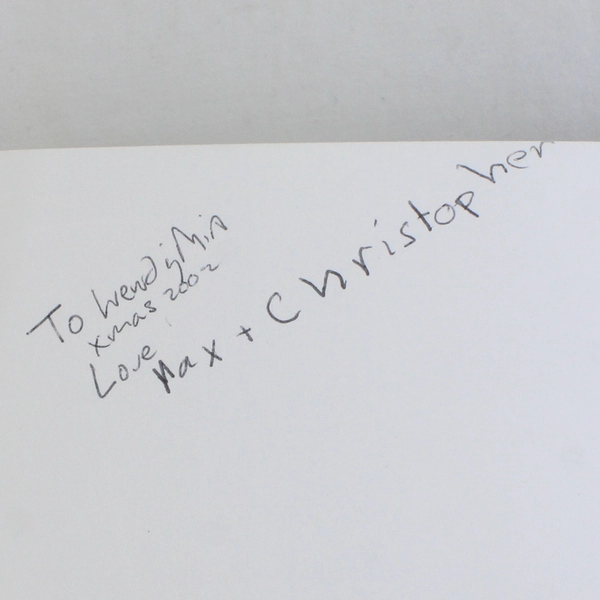 To Wendy Min
Xmas 2002
Love
Max + Christopher